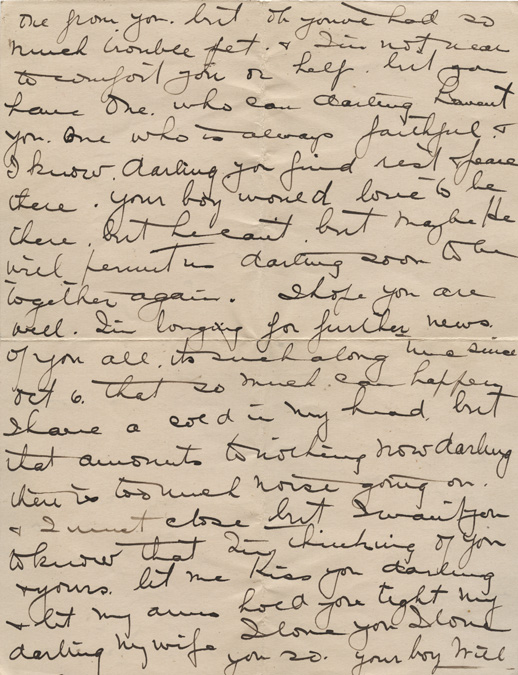 one from you. but Oh you've had so
much trouble pet. & I'm not near
to comfort you or help. but you
have One. who can darling havent
you. One who is always faithful. &
I know. darling you find rest & peace
there. your boy would love to be
there. but he can't. but maybe He
will permit us darling soon to be
together again. I hope you are
well. I'm longing for further news.
of you all. its such a long time since
Oct 6. that so much can happen
I have a cold in my head, but
that amounts to nothing now darling
there is too much noise going on.
& I must close but I want you
to know that I'm thinking of you
& yours. let me kiss you darling
& let my arms hold you tight my
darling my wife I love you I love
you so. your boy Will